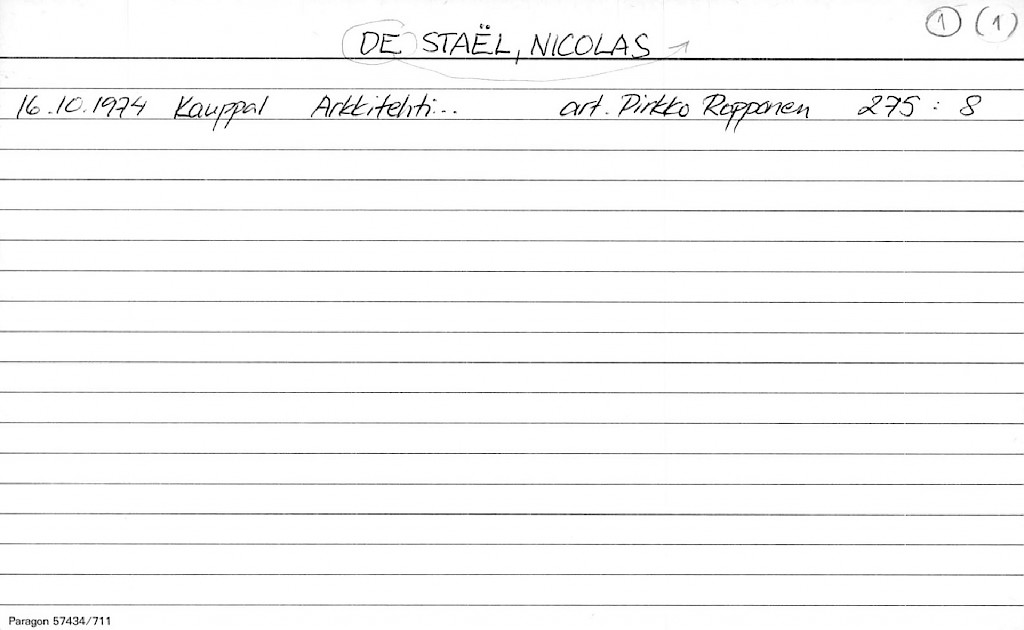 ① (1)
DE STAËL, NICOLAS
16.10.1974 Kauppal Arkkitehti... art. Pirkko Ropponen 275 : 8
Paragon 57434/711